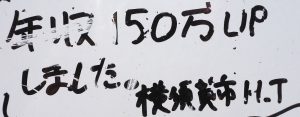 年収150万UP
しました。横須賀市H.T